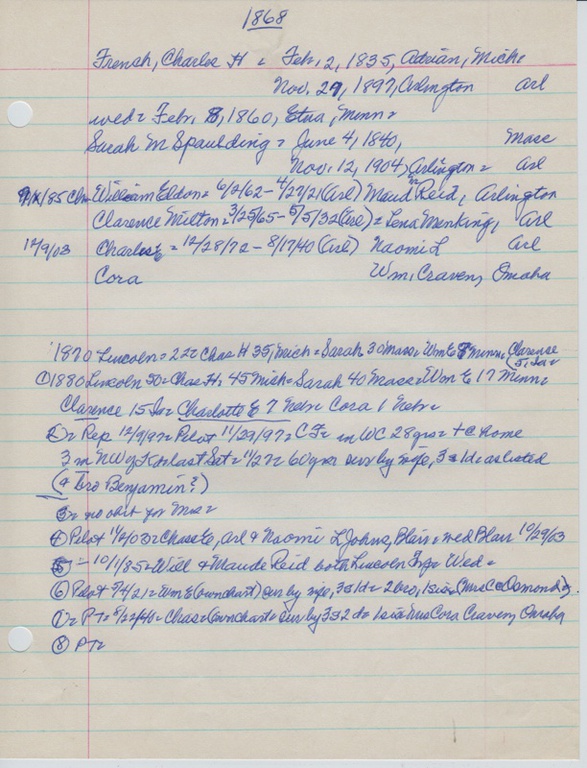 1868
French, Charles H = Feb. 2, 1835, Adrian, Mich=
Nov. 29, 1897, Arlington Arl
wed= Feb. 8, 1860, Etna, Minn=
Sarah M Spaulding = June 4, 1840, Mass
Nov. 12, 1904, Arlington = Arl
/85 Ch= William Eldon= 6/2/62-4/27/21 (Arl) Maud Reid, Arlington
Clarence Milton= 3/25/65-5/5/32 (Arl) = Lena Menking, Arl
12/9/03 Charles E = 12/28/72-8/17/40 (Arl) Naomi L Arl
Cora Wm. Craven, Omaha
1870 Lincoln= 22= Chas H 35, Mich= Sarah 30 Mass= Wm E 8 Minn= Clarence 5, Ia=
① 1880 Lincoln 50= Chas H. 45 Mich= Sarah 40 Mass= Wm E 17 Minn=
Clarence 15 Ia= Charlotte E 7 Neb= Cora 1 Neb=
②= Rep 12/9/97= Pilot 11/29/97= C Fr in WC 28 yrs= + C home
3 m NW of last Sat= 11/27= 60 yrs sur by wife, 3s 1d= as listed
(+ bro Benjamin?)
③= no obit for Mrs=
④ Pilot 11/6/03= Chas E, Arl + Naomi L Johns, Blair= wed Blair 10/29/03
⑤= 10/1/85= Will + Maude Reid both Lincoln Twp= Wed=
⑥ Pilot 5/4/21= Wm E (own chart) sur by wife, 3s 1d= 2 bro, 1 sis= (Mrs C C Osmond)
⑦= PT= 8/22/40= Chas= (own chart= sur by 3s 2d= 1 sis= Mrs Cora Craven, Omaha
⑧ PT=